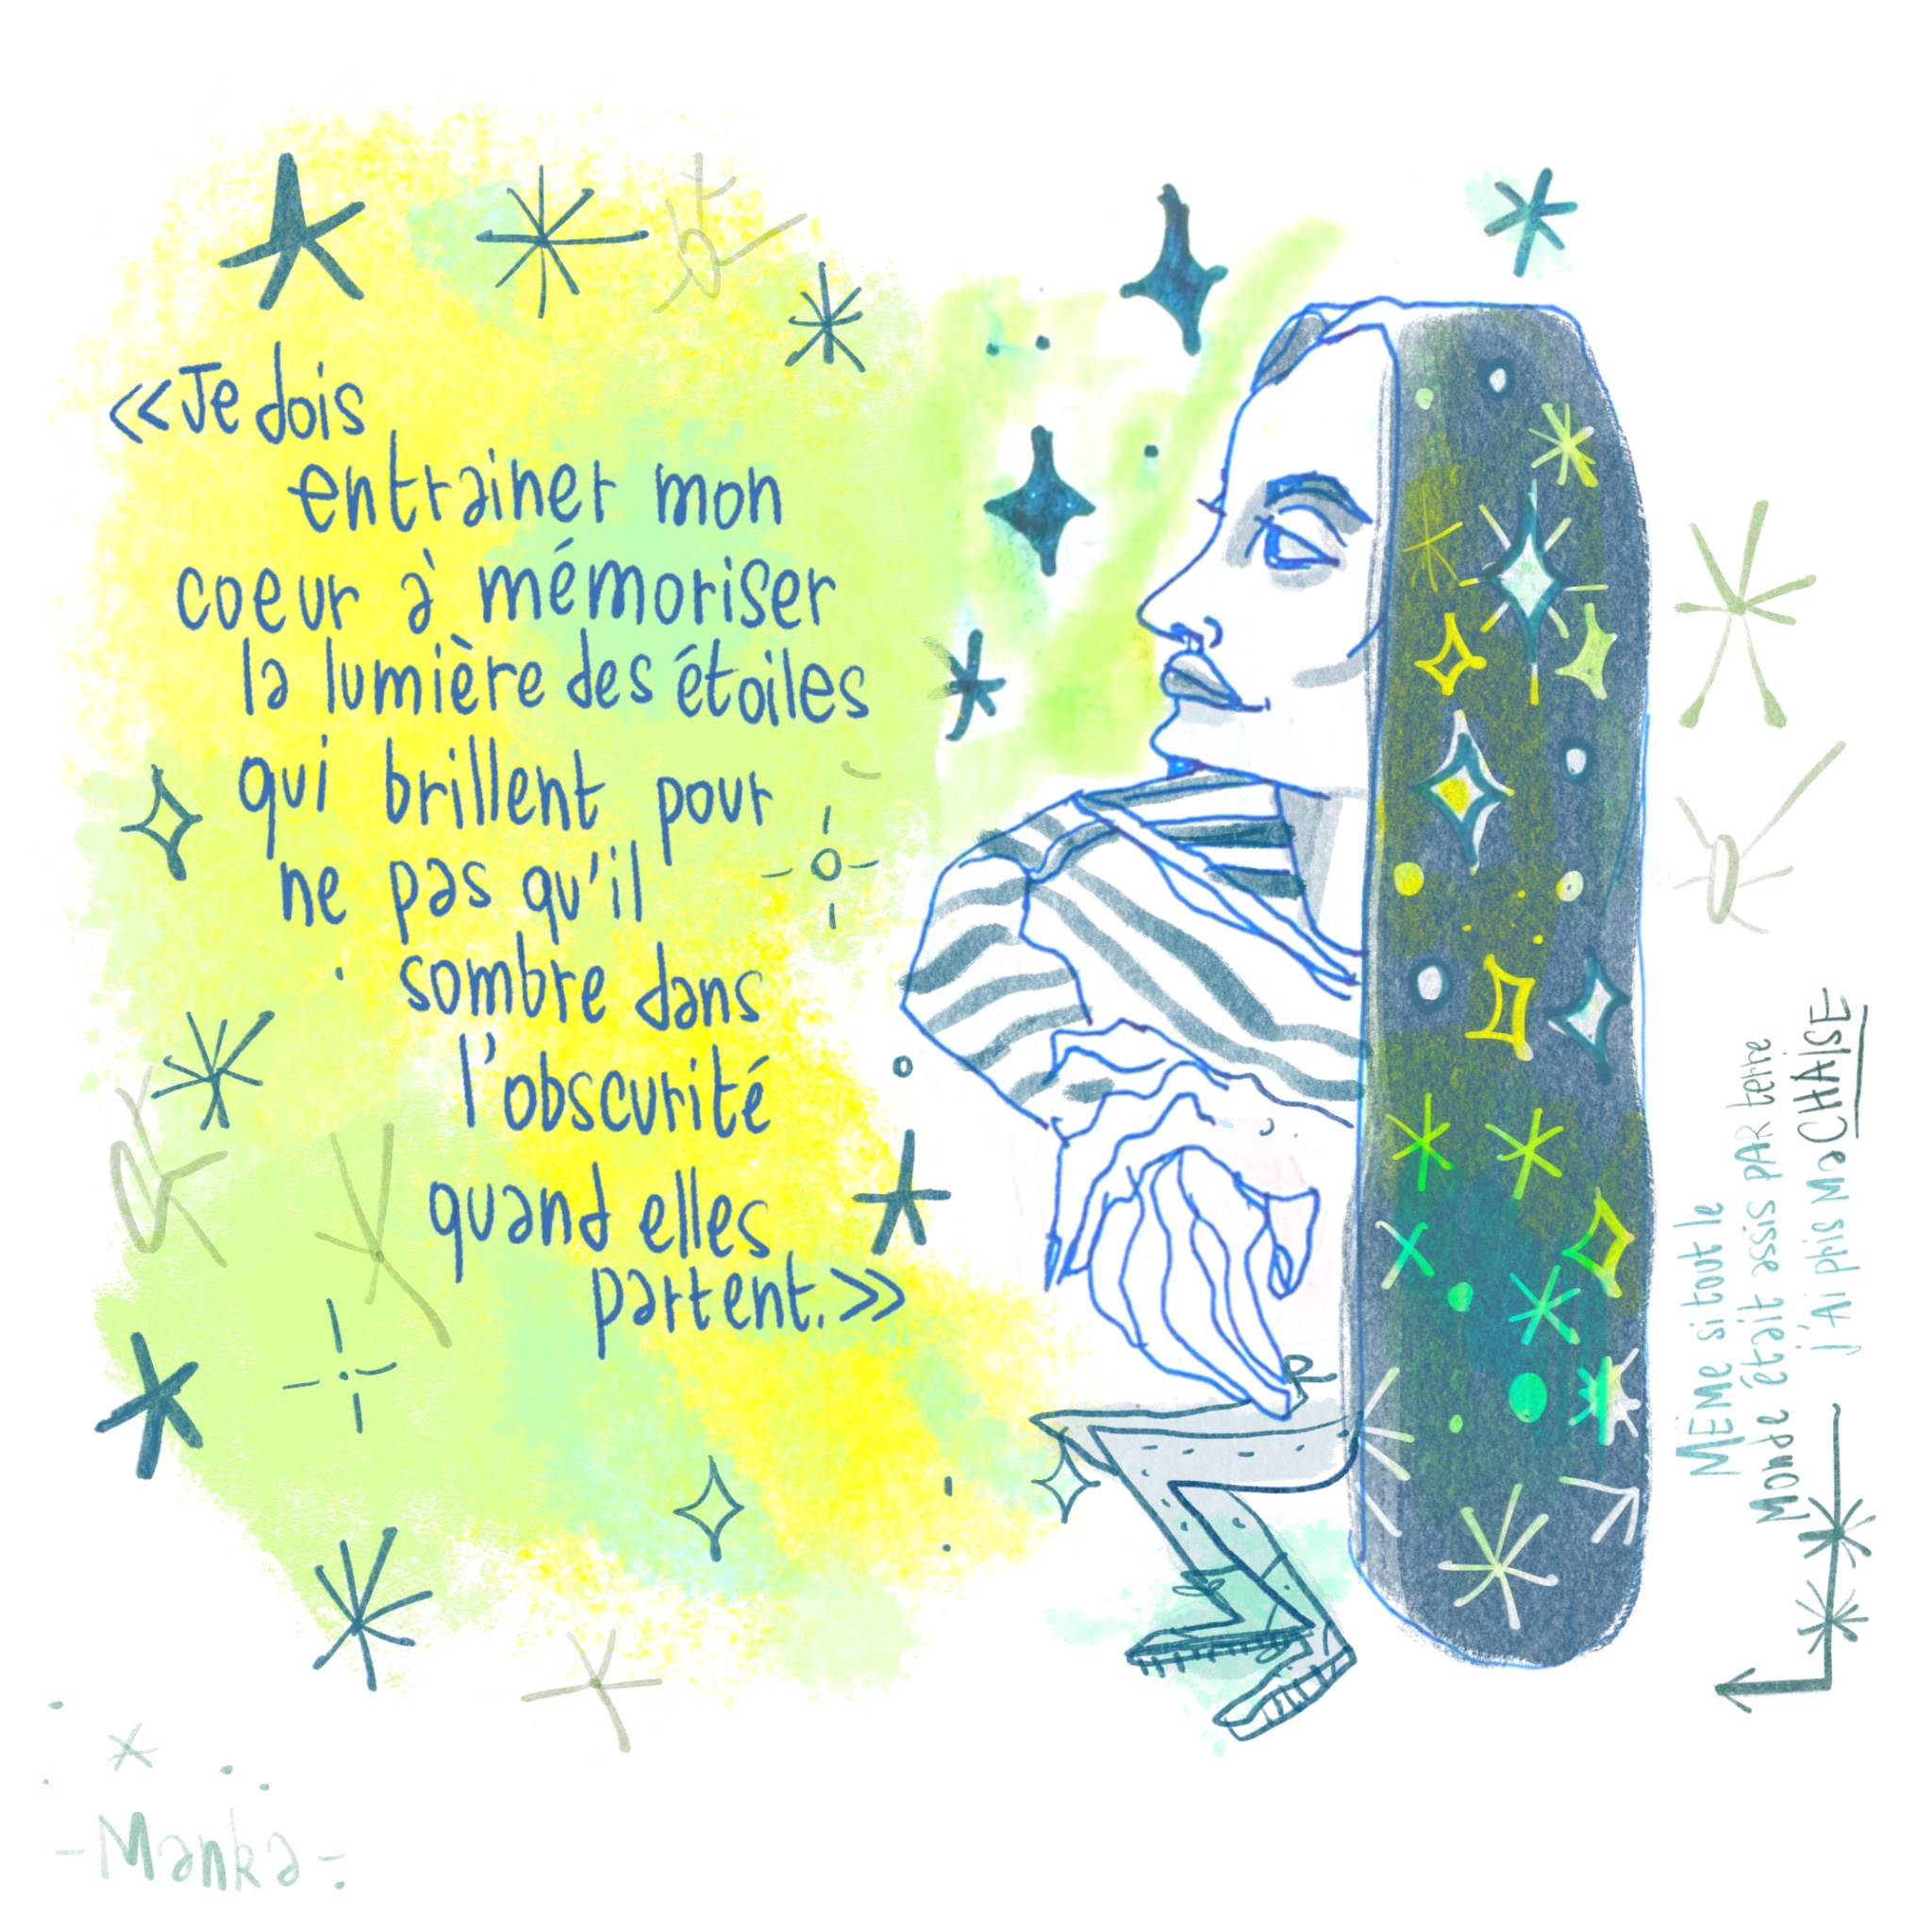 «Je dois
entrainer mon
coeur à mémoriser
la lumière des étoiles
qui brillent pour
ne pas qu'il
sombre dans
l'obscurité
quand elles
partent.»
MÊME si tout le
Monde était assis PAR terre
j'Ai pris Ma CHAISE
-Manka-